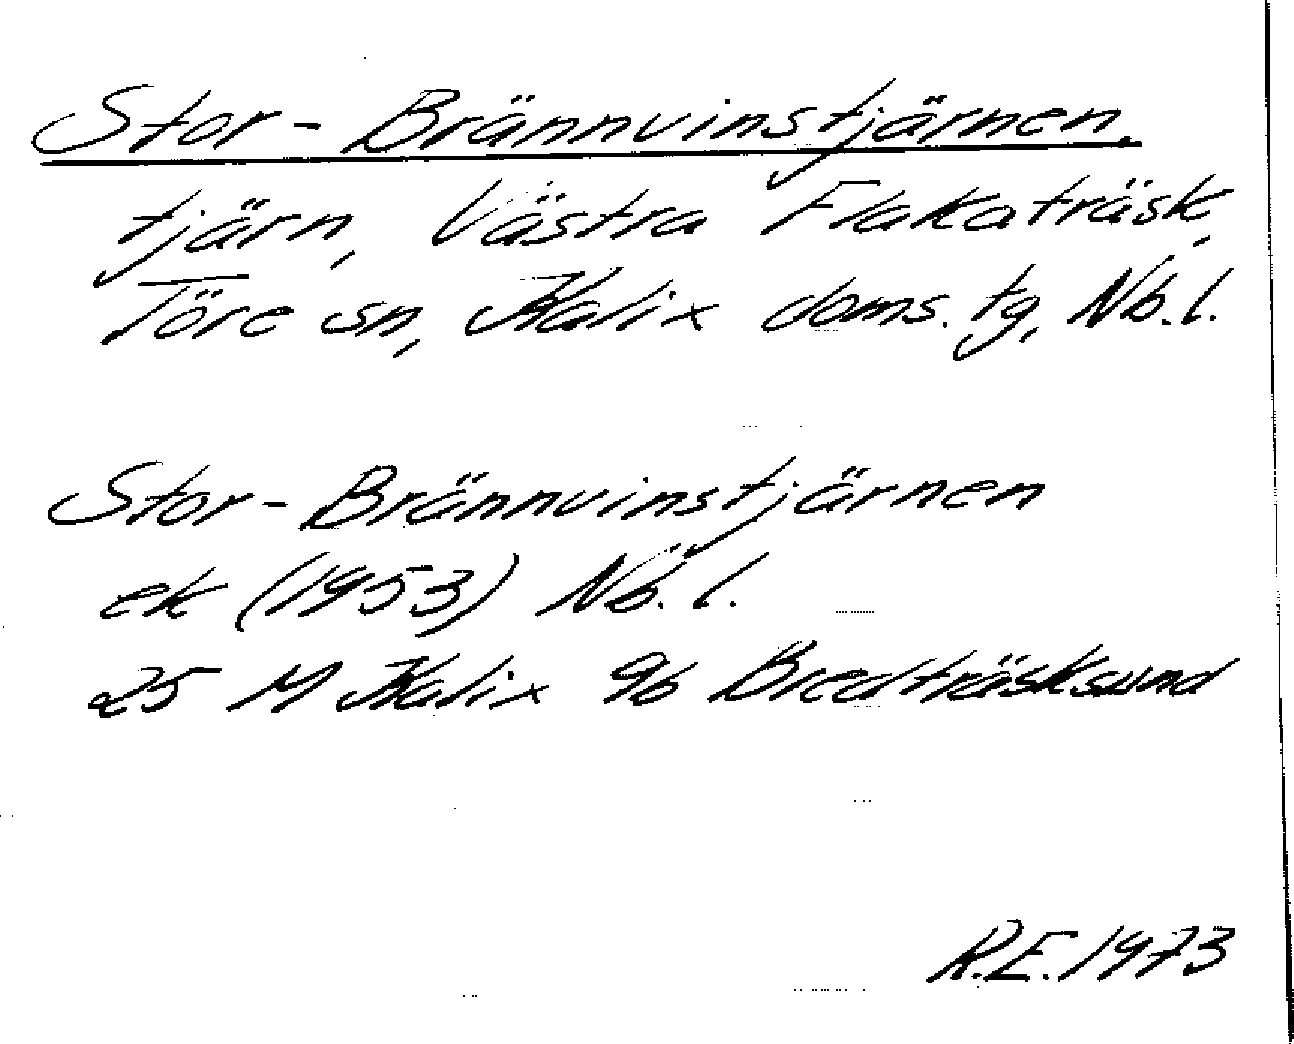 Stor-Brännvinstjärnen.
tjärn, Västra Flakaträsk,
Töre sn, Kalix doms. tg, Nb.l.
Stor-Brännvinstjärnen
ek (1953) Nb.l.
25 M Kalix 9b Bredträsksund
R.E.1973